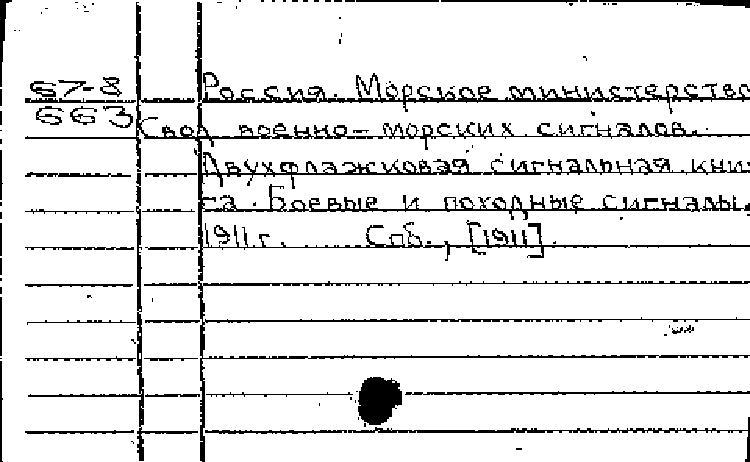 67-8 Россия. Морское министерство
663 Свод военно-морских сигналов.
Двухфлажковая сигнальная кни-
га. Боевые и походные сигналы.
1911 г. Спб., [1911].